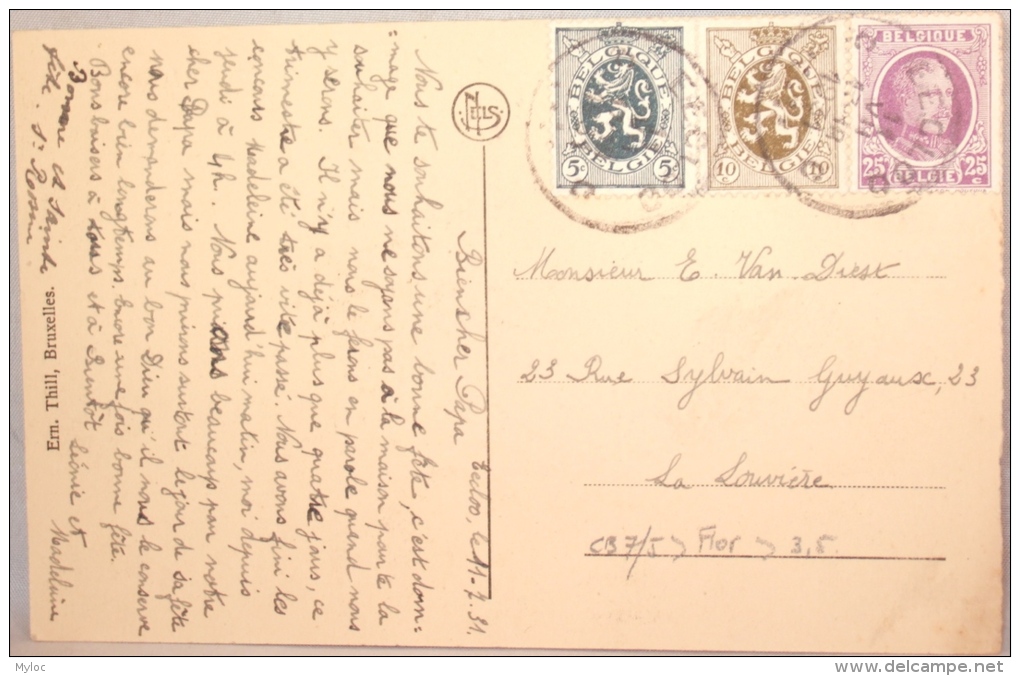 Bien cher Papa
Eecloo, le 11-7-31.
Nous te souhaitons une bonne fête, c'est dom=
=mage que nous ne soyons pas à la maison pour te la
souhaiter mais nous le ferons en parole quand nous
y serons. Il n'y a déjà plus que quatre jours, ce
trimestre a été très vite passé. Nous avons fini les
examens Madeleine aujourd'hui matin, moi depuis
jeudi à 4h. Nous prions beaucoup pour notre
cher Papa mais nous prirons surtout le jour de sa fête
nous demanderons au bon Dieu qu'il nous le conserve
encore bien longtemps. Encore une fois bonne fête.
Bons baisers à tous et à Bientôt
Léonie et Madeleine
Bonne et Sainte
fête.
Ern. Thill, Bruxelles.
NELS
BELGIQUE
5c 5c
BELGIË
BELGIQUE
10c 10c
BELGIË
BELGIQUE
25c 25c
BELGIË
EECLOO
Monsieur E. Van Diest
23 Rue Sylvain Guyaux, 23
La Louvière
Myloc
delcampe.net